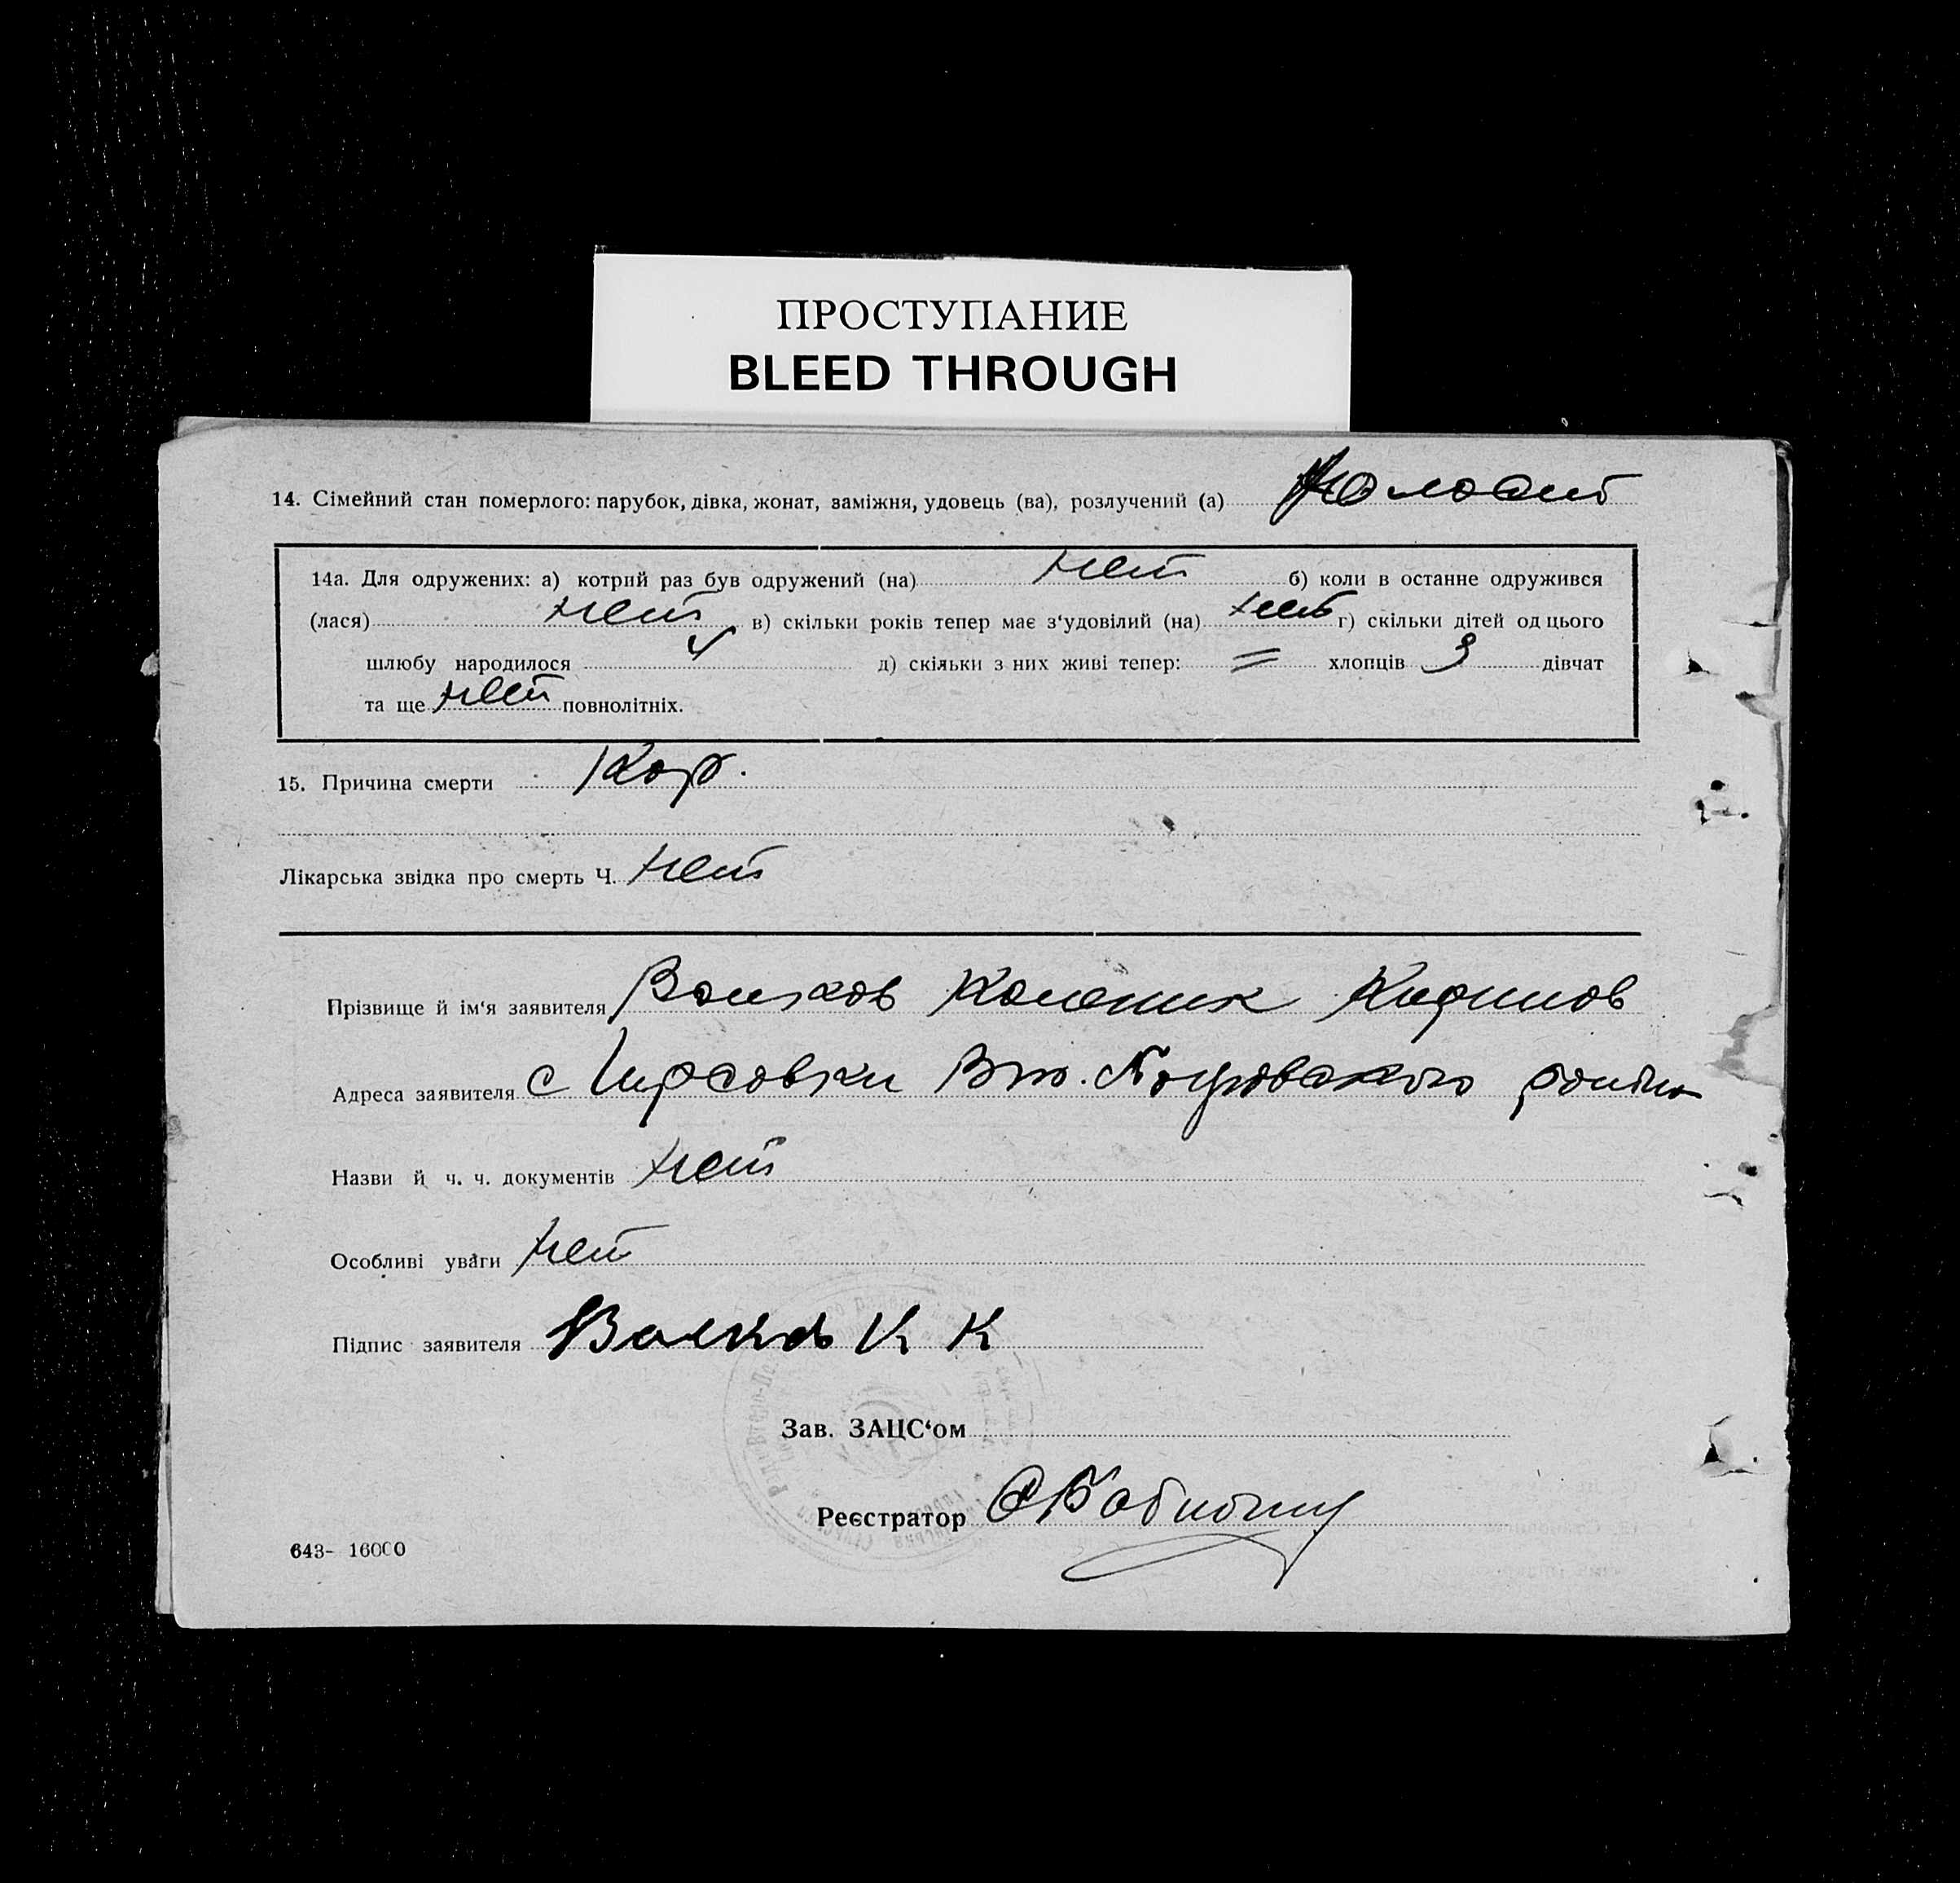 ПРОСТУПАНИЕ
BLEED THROUGH
14. Сімейний стан померлого: парубок, дівка, жонат, заміжня, удовець (ва), розлучений (а)
14а. Для одружених: а) котрий раз був одружений (на) нет б) коли в останне одружився
(лася) нет в) скільки років тепер має з‘удовілий (на) нет г) скільки дітей од цього
шлюбу народилося д) скільки з них живі тепер: = хлопців 3 дівчат
та ще нет повнолітніх.
15. Причина смерти Кор.
Лікарська звідка про смерть Ч. нет
Прізвище й ім‘я заявителя Волков
Адреса заявителя с
Назви й ч. ч. документів нет
Особливі уваги нет
Підпис заявителя Волков К К
Зав. ЗАЦС‘ом
Реєстратор
643- 16000